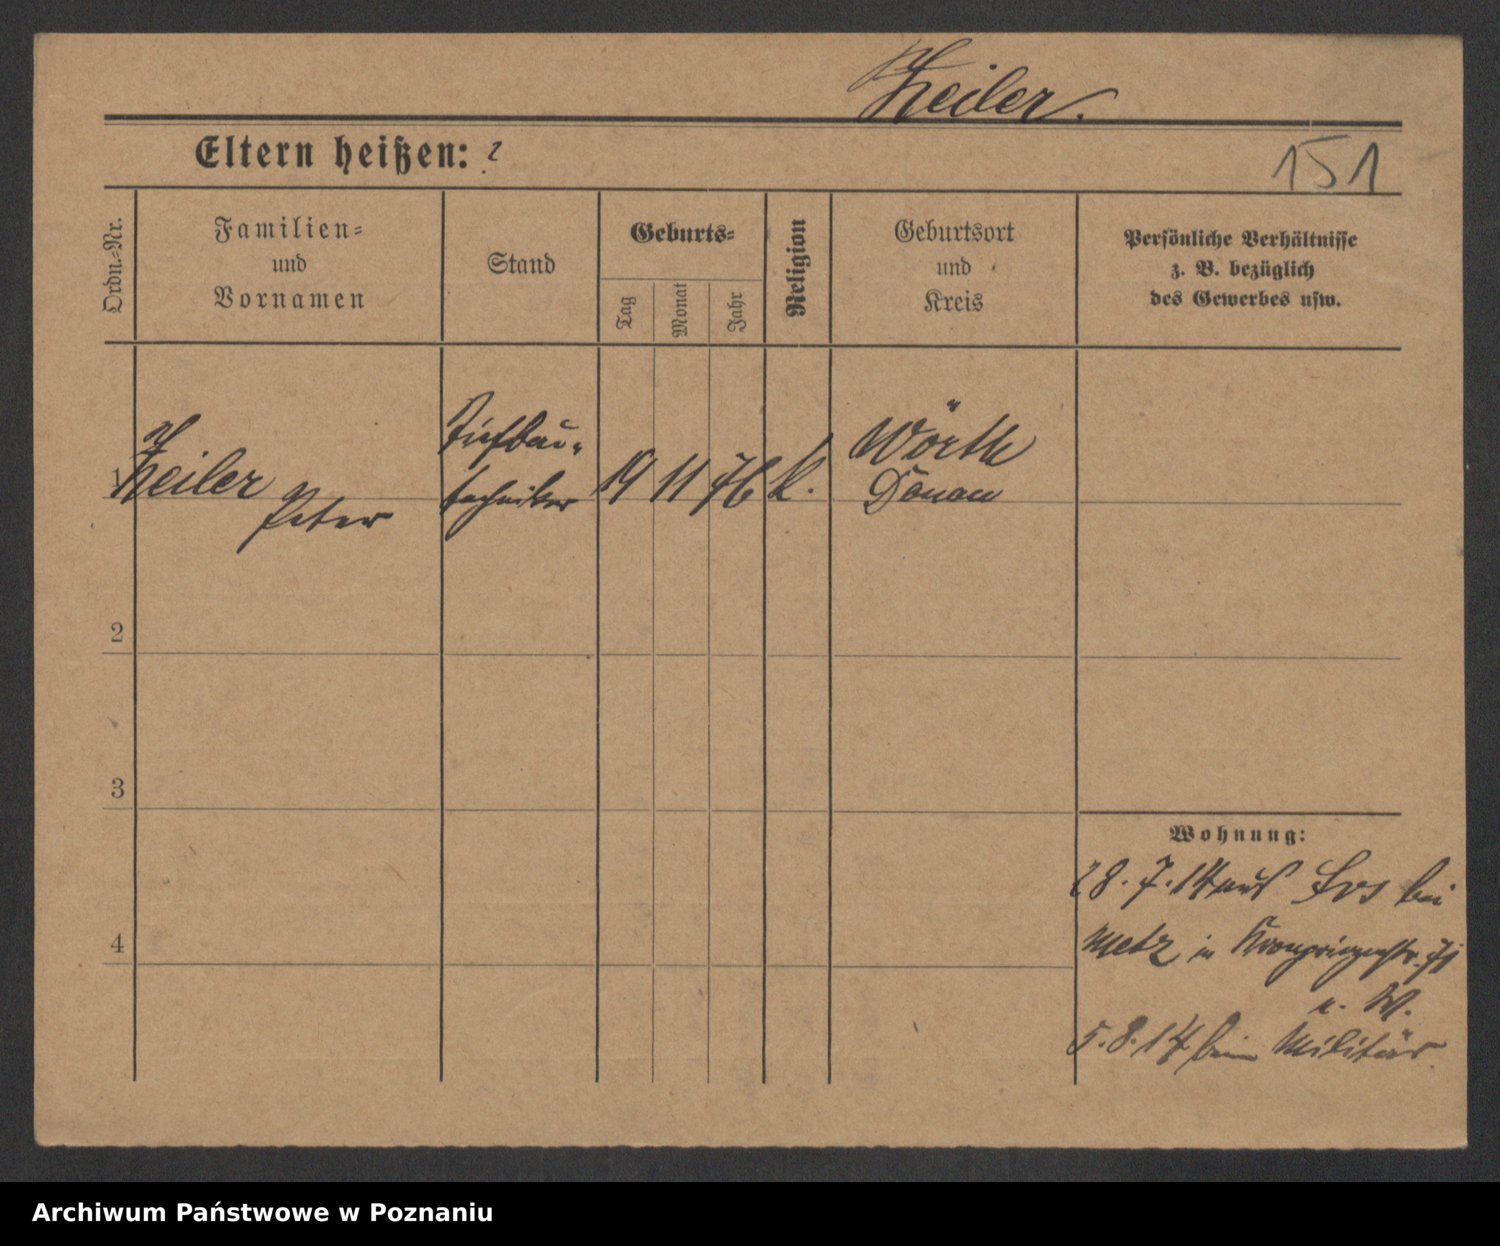 Zeiler.
Eltern heißen: ?
151
Ordn.-Nr.
Familien-
und
Vornamen
Stand
Geburts-
Tag
Monat
Jahr
Religion
Geburtsort
und
Kreis
Persönliche Verhältnisse
z. B. bezüglich
des Gewerbes usw.
Zeiler
Peter
Tiefbau-
techniker
19 11 76 k.
Wörth
Donau
2
3
4
Wohnung:
28. 7. 14 aus bei
Metz in Kronprinzenstr.
b. W.
5. 8. 14 beim Militär.
Archiwum Państwowe w Poznaniu